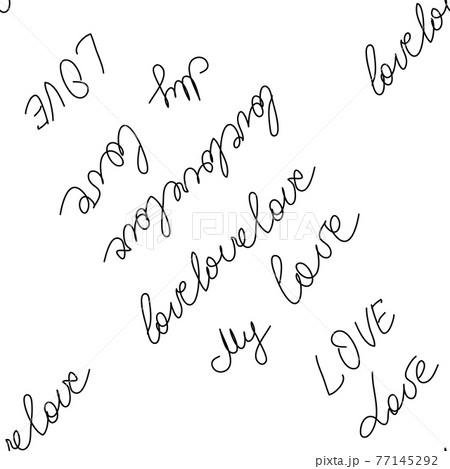 lovelo
LOVE
My
Love
lovelovelove
lovelovelove
love
My
LOVE
Love
elove
PIXTA
pixta.jp - 77145292